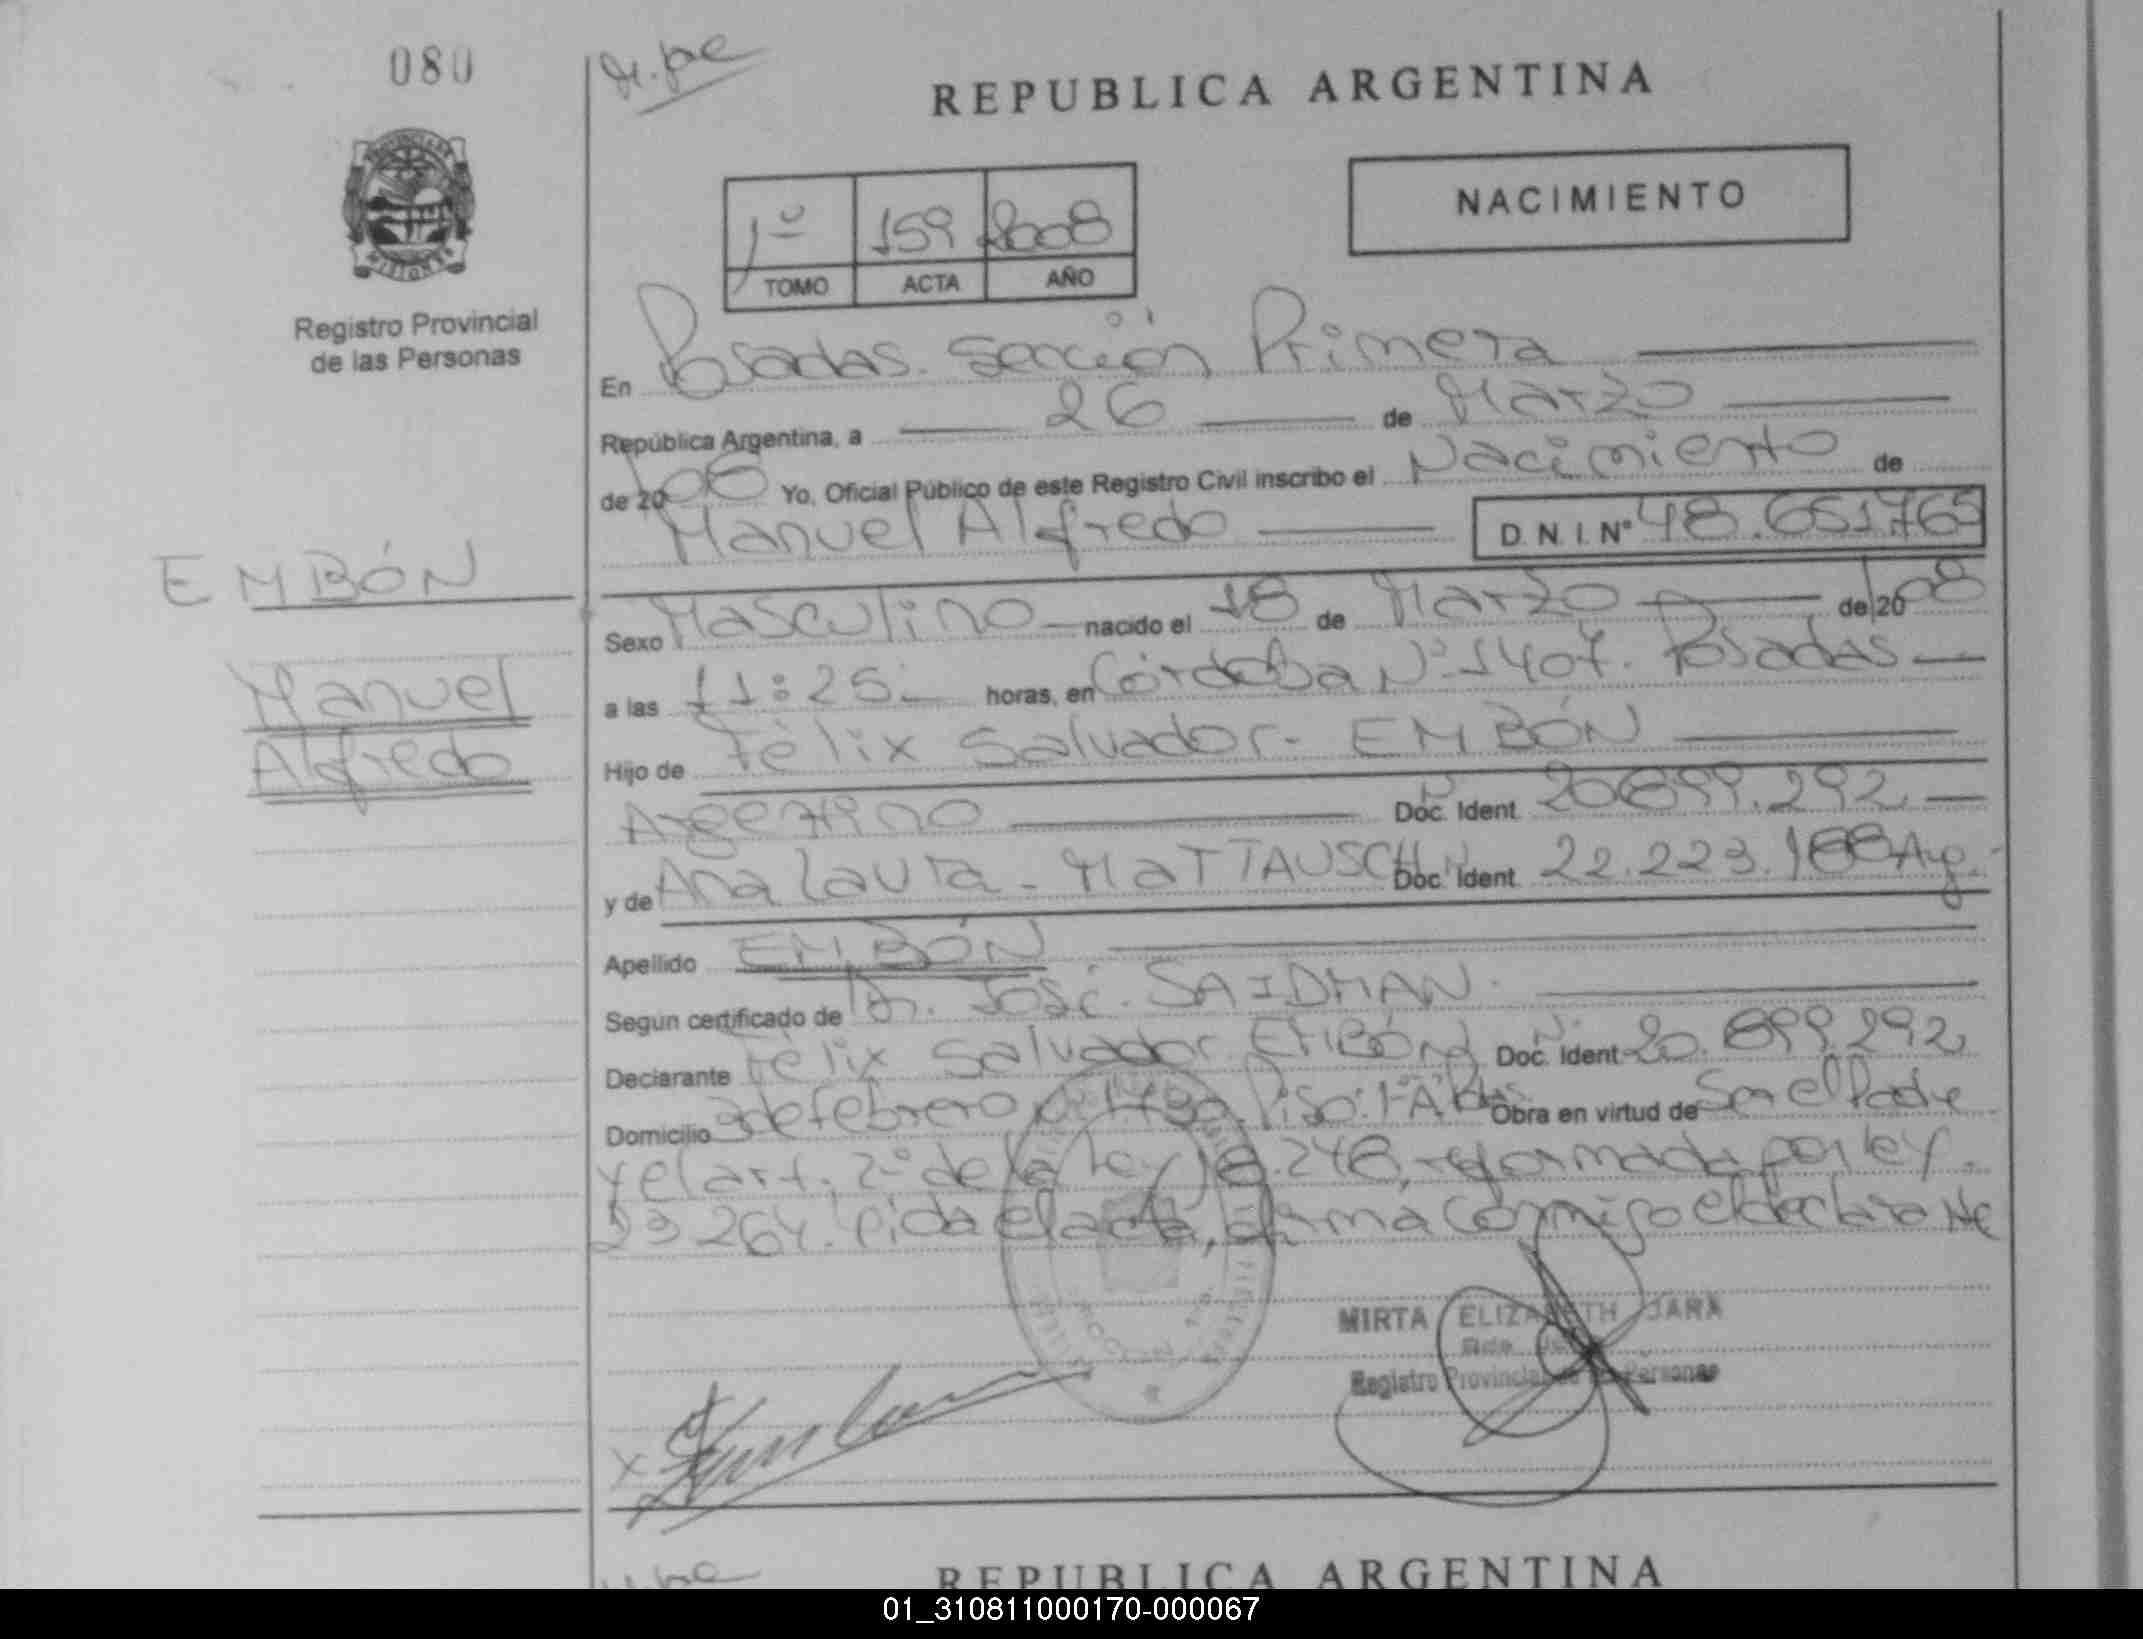 080
REPUBLICA ARGENTINA
NACIMIENTO
1º 159 2008
TOMO ACTA AÑO
Registro Provincial
de las Personas
En Posadas. Sección Primera
República Argentina, a 26 de Marzo
de 2008 Yo, Oficial Público de este Registro Civil inscribo el Nacimiento de
Manuel Alfredo D.N.I. Nº 48.651765
EMBÓN
Manuel
Alfredo
Sexo Masculino nacido el 18 de Marzo de 2008
a las 11:25 horas, en Córdoba Nº 1407. Posadas
Hijo de Félix Salvador. EMBÓN
Argentino Doc. Ident. 20.899.292
y de Ana Laura - MATTAUSCH Doc. Ident. 22.223.188 Arg.
Apellido EMBÓN
Segun certificado de Dr. José. SAIDMAN.
Declarante Félix Salvador EMBÓN Doc. Ident 20.899.292
Domicilio 3 de febrero Piso: 1º A Obra en virtud de Ser el Padre
y el art. 2º de la Ley 18.248, reformada por ley
23264. Leida el acta, firma conmigo el declarante
MIRTA ELIZABETH JARA
Registro Provincial de las Personas
REPUBLICA ARGENTINA
01_310811000170-000067